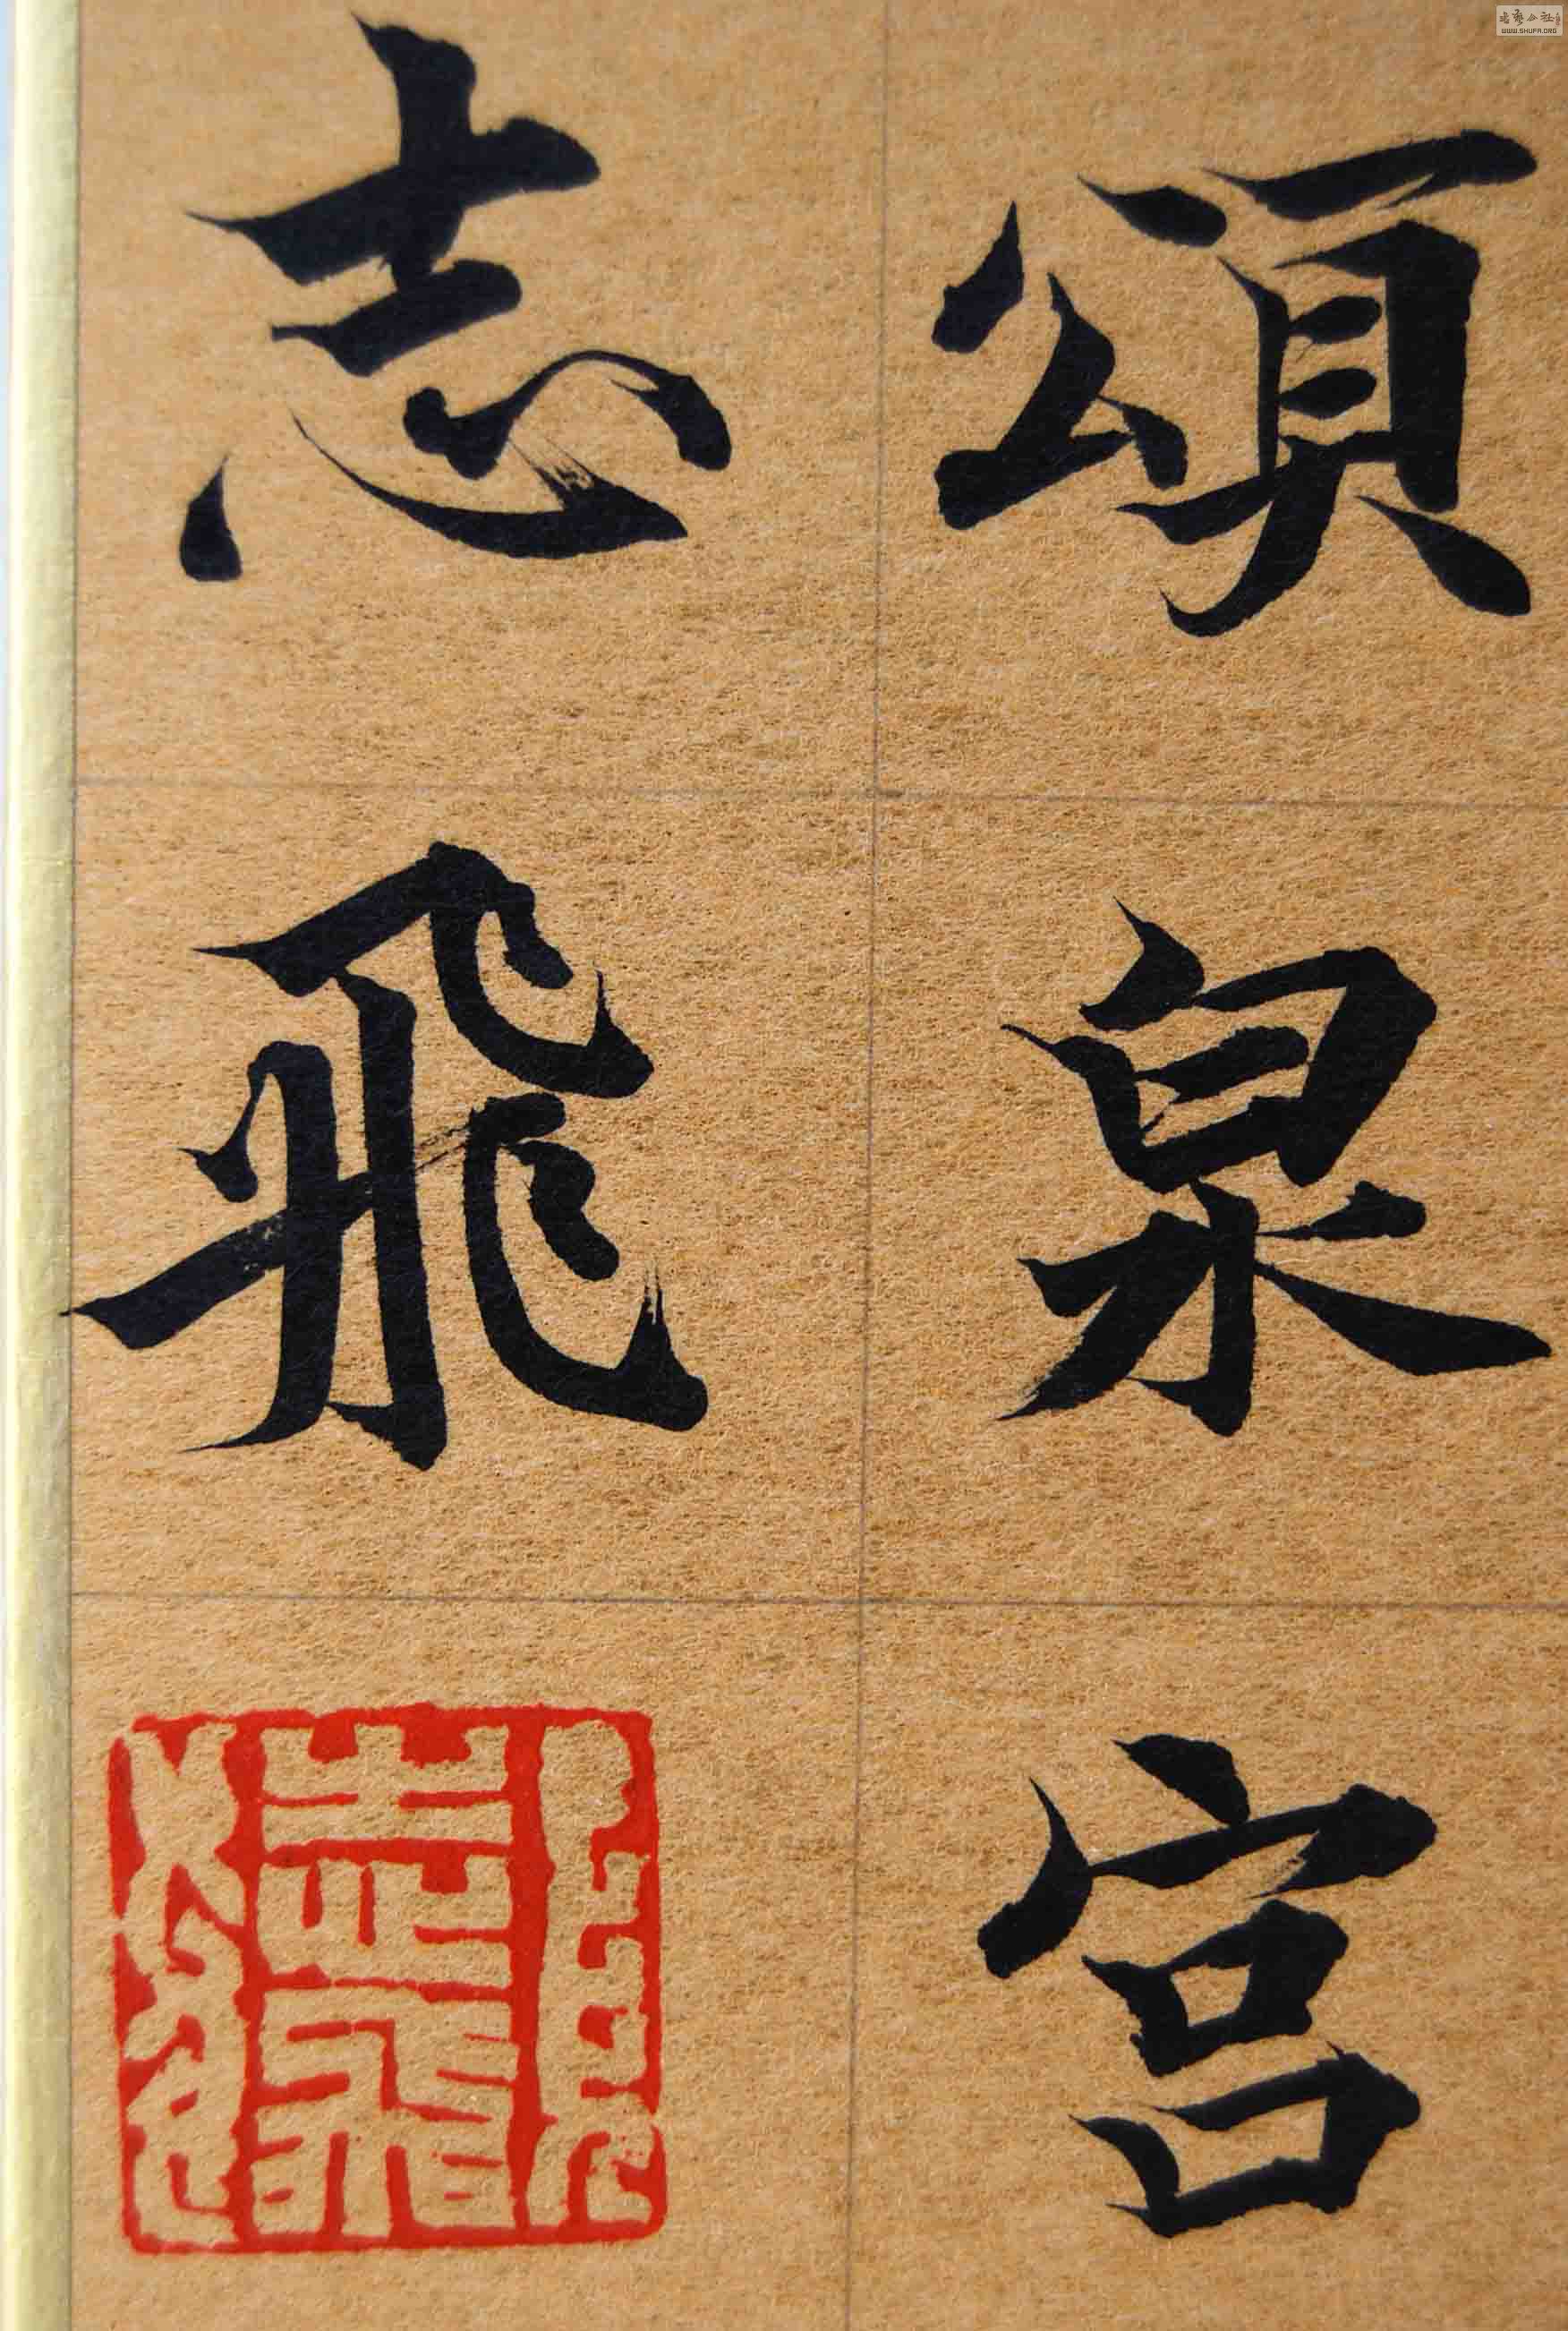 頌泉宫
志飛
书艺公社
WWW.SHUFA.ORG